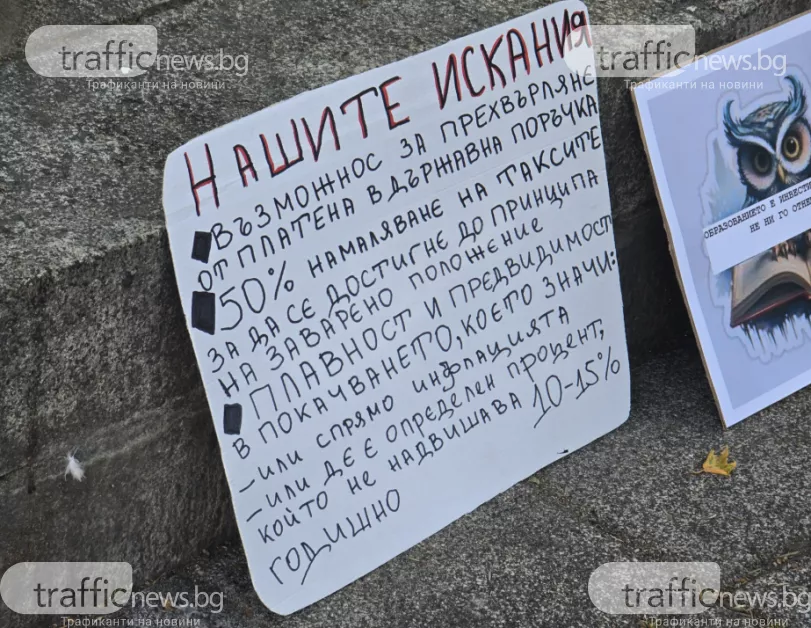 trafficnews.bg
Трафиканти на новини
trafficnews.bg
Трафиканти на новини
НАШИТЕ ИСКАНИЯ
ВЪЗМОЖНОС ЗА ПРЕХВЪРЛЯНЕ
ОТ ПЛАТЕНА В ДЪРЖАВНА ПОРЪЧКА
50% НАМАЛЯВАНЕ НА ТАКСИТЕ
ЗА ДА СЕ ДОСТИГНЕ ДО ПРИНЦИПА
НА ЗАВАРЕНО ПОЛОЖЕНИЕ
ПЛАВНОСТ И ПРЕДВИДИМОСТ
В ПОКАЧВАНЕТО, КОЕТО ЗНАЧИ:
- ИЛИ СПРЯМО ИНФЛАЦИЯТА
- ИЛИ ДА Е ОПРЕДЕЛЕН ПРОЦЕНТ,
КОЙТО НЕ НАДВИШАВА 10-15%
ГОДИШНО
ОБРАЗОВАНИЕТО Е ИНВЕСТИ
НЕ НИ ГО ОТНЕ
trafficnews.bg
Трафиканти на новини
trafficnews.bg
Трафиканти на новини